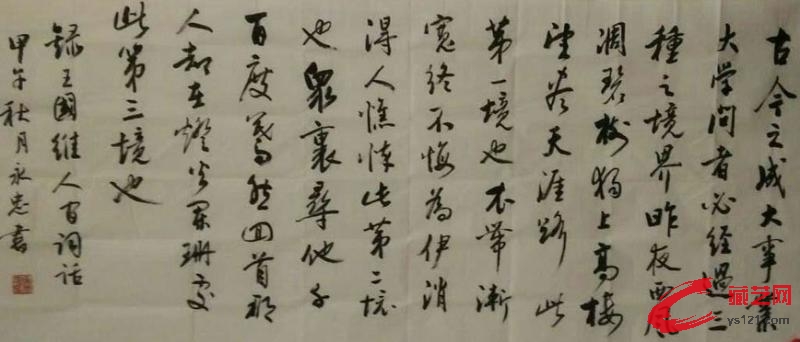 古今之成大事業
大学问者必经過三
種之境界昨夜西风
凋碧树獨上高楼
望尽天涯路此
第一境也衣带渐
宽终不悔為伊消
得人憔悴此第二境
也眾裏尋他千
百度蓦然回首那
人却在燈火阑珊处
此第三境也
録王國維人间词话
甲午秋月永忠書
藏艺网